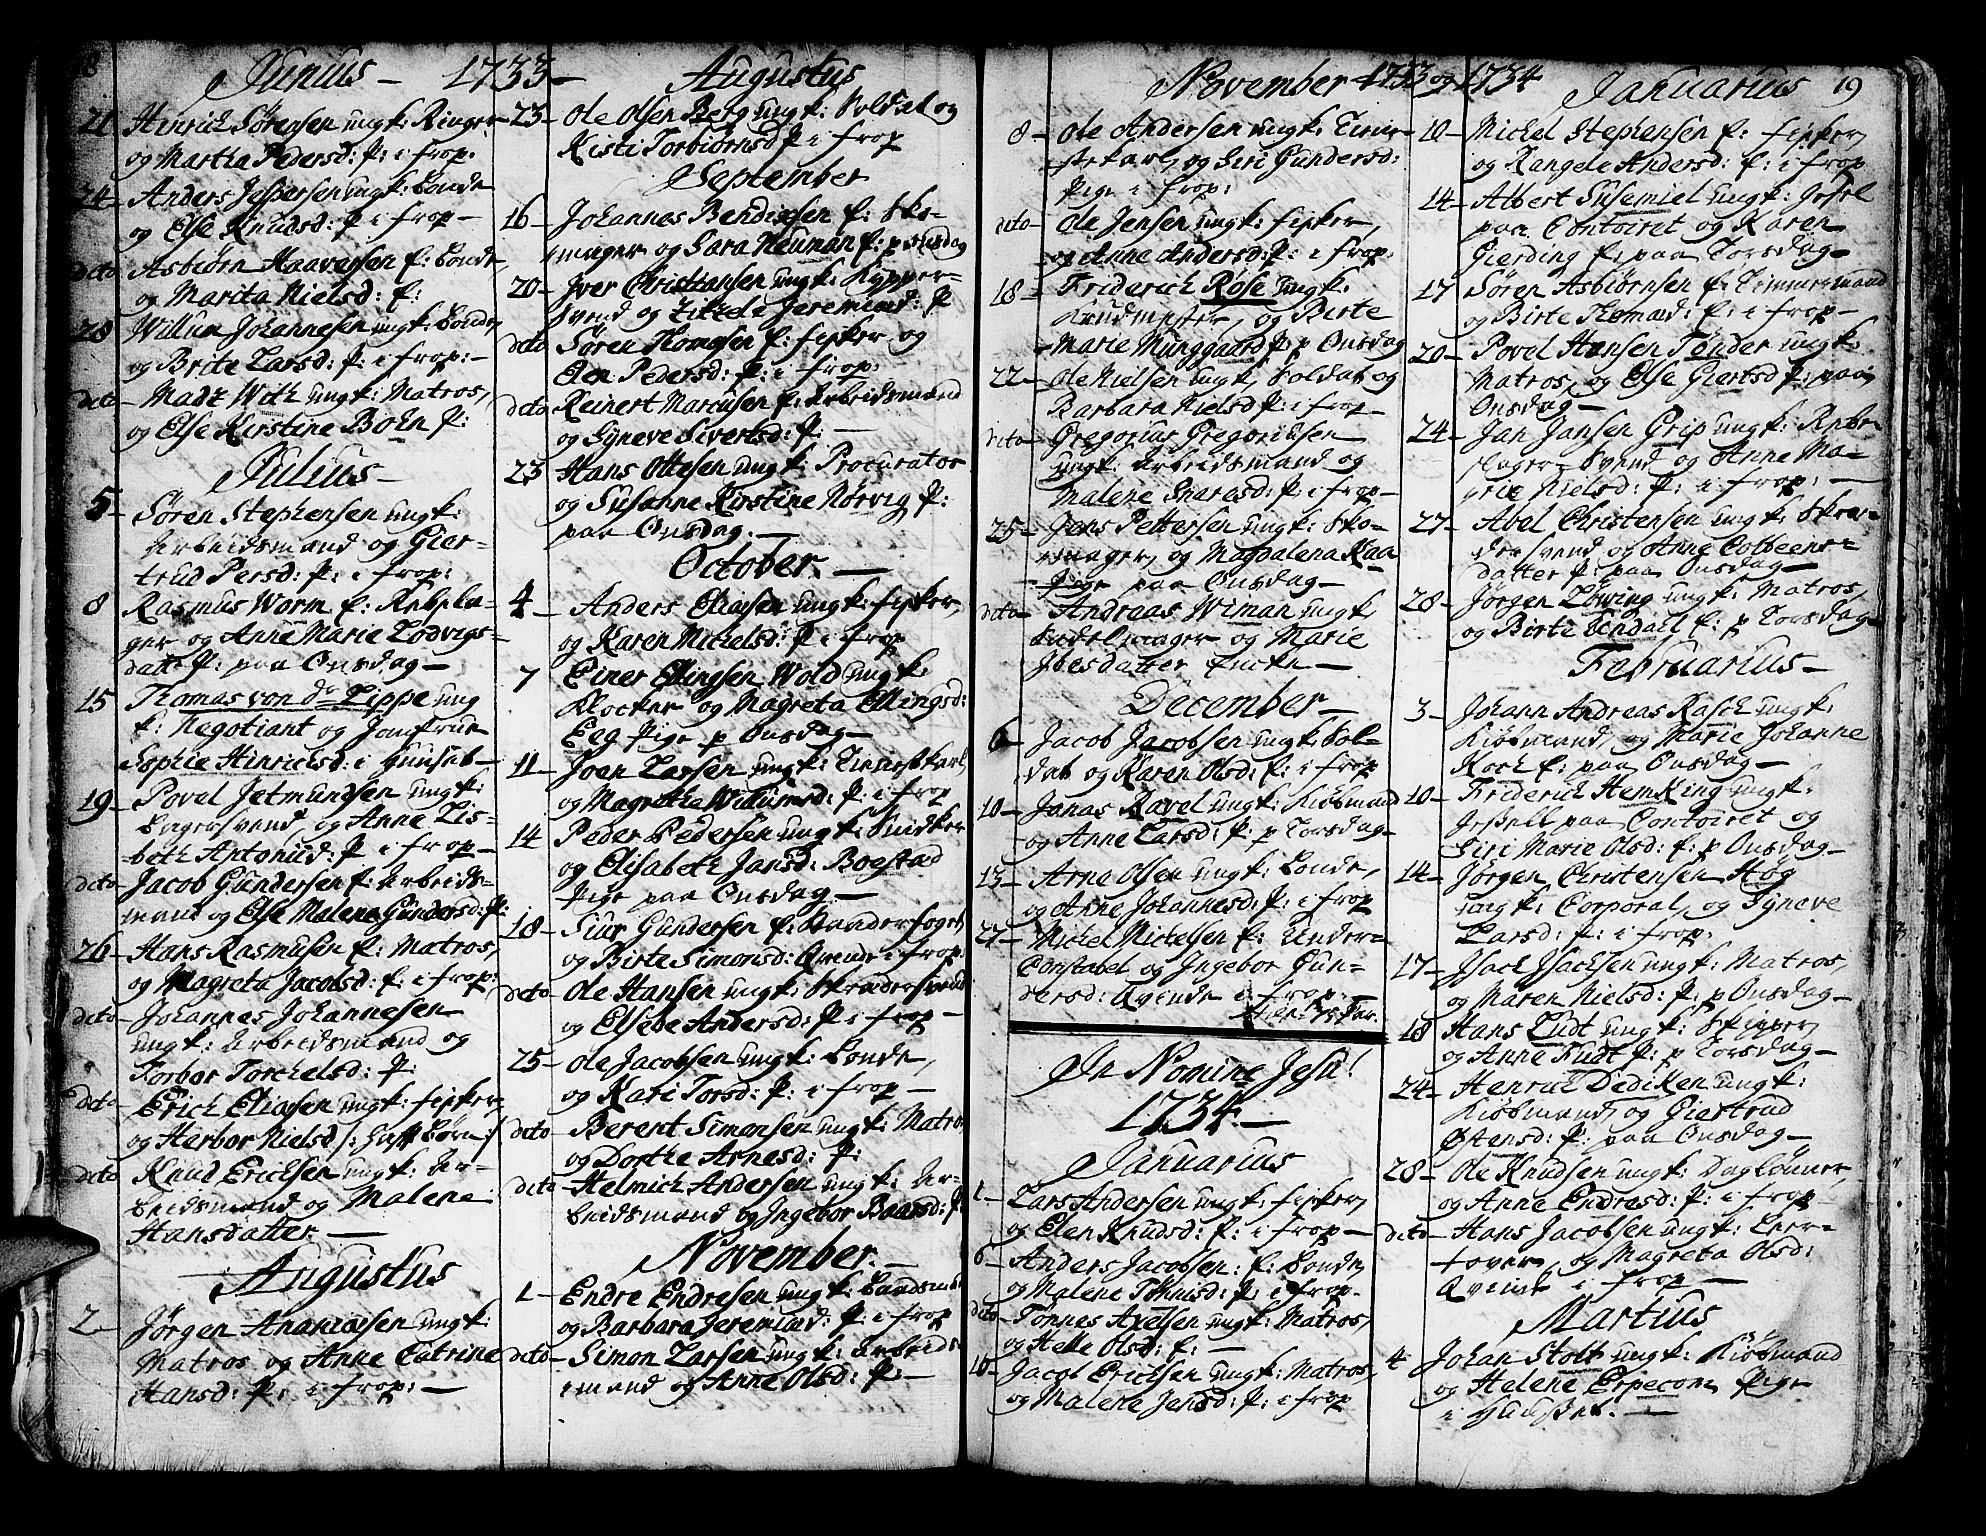 18
Junius — 1733 —
21 Hinrich Sørensen ungk: Ringer
og Martha Peders d: P: i frop.
24 Anders Jespersen ungk: bonde
og Else Knudsd: P: i frop —
dito Asbiørn Haaversen E: bonde,
og Marita Nielsd: E:
28 Willum Johannesen ungk: bonde,
og Brite Larsd: P: i frop: —
dito Madz With ungk: Matros,
og Else Kirstine Bohn P:
Julius —
5 — Søren Stephensen ungk:
Arbeidsmand og Gier-
trud Persd: P: i frop:
8 Rasmus Worm E: Rebsla-
ger og Anne Marie Lodvigs-
datt: P: paa Onsdag —
15 Thomas von dr Lippe ung
k: Negotiant og Jomfrue
Sophie Hinrichsd: i Huuset —
19 — Povel Jetmundsen ungk:
bagersvend, og Anne Lis-
beth Antonisd: P i frop —
dito Jacob Gundersen E: Arbeids-
mand og Else Malene Gundersd: P:
26 Hans Rasmusen E: Matros,
og Magreta Jacobsd: E: i frop:
dito — Johannes Johannesen
ungk: Arbeidsmand og
Torbor Torchelsd: P:
dito Erich Eliasen ungk: fisker,
og Herbor Nielsd
dito Knud Ericksen ungk: Ar-
beidsmand og Malene
Hansdatter —
Augustus
2 — Jørgen Ananiasen ungk:
Matros og Anne Catrine
Hansd: P: i frop: —
Augustus
23 — Ole Olsen Berg ungk: Soldat og
Kisti Torbiørnsd P i frop
September
16 — Johannes Bendixsen E: Sko-
mager og Sara Neuman E: p Onsdag
20 — Iver Christiansen ungk: Kypper-
svend og Zitzele Jeremiæd: P
dito Søren Thomesen E: fisker og
Elen Pedersd: P: i frop:
dito Reinert Marcusen E: Arbeidsmand
og Syneve Sivertsd: P: —
23 Hans Ottesen ungk: Procurator
og Susanne Kirstine Nørvig P:
paa Onsdag. —
October. —
4 — Anders Eliasen ungk: fisker,
og Karen Michelsd: P: i frop
7 Einer Ellingsen Wold ungk:
Klocker og Magreta Ellingsd:
Eeg Pige p Onsdag —
11 — Joen Larsen ungk: Timmerkarl,
og Magrethe Willumsd: P: i frop
14 Peder Pedersen ungk: Snidker
og Elisabeth Jansd: Boestad
Pige paa Onsdag —
18 — Siur Gundersen E:
og Birte Simonsd: Qvinde i frop:
dito — Ole Hansen ungk: Skrædersvend
og Elsebe Andersd: P: i frop
25 — Ole Jacobsen ungk: bonde,
og Kari Torsd: P: i frop —
dito — Berent Simonsen ungk: Matros
og Dorthe Arnesd: P:
dito — Helmich Andersen ungk: Ar-
beidsmand og Ingebor Baarsd: P:
November.
1 — Endre Endresen ungk:
og Barbara Jeremiæd: P: i frop
dito — Simon Larsen ungk: Arbeids-
mand og Anne Olsd: P: —
November 1733 og 1734 Januarius 19
8 — Ole Andersen ungk: Timmer-
karl, og Siri Gundersd:
Pige i frop:
dito Ole Jensen ungk: fisker,
og Anne Andersd: P: i frop:
18 — Friderich Röse ungk:
og Birte
Marie Munggaard P: p Onsdag
22 — Ole Nielsen ungk: Soldat og
Barbara Nielsd P: i frop —
dito — Gregorius Gregoriusen
ungk: Arbeidsmand og
Malene Snaresd: P: i frop —
25 — Jens Pettersen ungk: Sko-
mager, og Magdalena Kaa
Pige paa Onsdag —
dito — Andreas Wiman ungk:
og Marie
Ibesdatter Encke —
December —
6 Jacob Jacobsen ungk: Sol-
dat og Karen Olsd: P: i frop
10 — Jonas Ravel ungk: Kiøbmand
og Anne Larsd: P: p Torsdag —
13 — Arne Olsen ungk: bonde,
og Anne Johannesd: P: i frop
27 — Michel Michelsen E: Under-
Constabel og Ingebor Gun-
dersd: Qvinde i frop: —
In Nomine Jesu!
1734. —
Januarius
1 — Lars Andersen ungk: fisker,
og Elen Knudsd: P: i frop:
6 — Anders Jacobsen: E: bonde,
og Malene Tønnisd: P: i frop.
dito Tønnes Axelsen ungk: Matros,
og Helle Olsd: E: —
10 — Jacob Ericksen ungk: Matros,
og Malene Jensd: P: i frop
10 — Michel Stephensen E: fisker,
og Rangele Andersd: E: i frop
14 — Albert Susemiel ungk: Gesel
paa Contoiret og Karen
Gierding E: paa Torsdag —
17 Søren Asbiørnsen E: Timmermand
og Birte Thomæd: E: i frop —
20 — Povel Hansen Tønder ungk:
Matros, og Else Giertsd P: paa
Onsdag —
24 — Jan Jansen Grip ungk: Rebe-
slager-Svend og Anne Ma-
grie Nielsd: P: i frop: —
27 — Abel Christensen ungk: Skræ-
dersvend og Anne Colbeens-
datter P: paa Onsdag —
28 — Jørgen Löwing ungk: Matros,
og Birte Vendael E: p Torsdag —
Februarius —
3 — Johann Andreas Rasch ungk:
Kiøbmand, og Marie Johanne
Koch E: paa Onsdag —
10 — Friderich HemKing ungk:
Gesell paa Contoiret og
Siri Marie Olsd: E: p Onsdag —
14 — Jørgen Christensen Høg
ungk: Corporal, og Syneve
Larsd: P: i frop:
17 — Isach Isachsen ungk: Matros,
og Maren Nielsd: P: p Onsdag —
18 Hans Ludt ungk: Skipper,
og Anne Fludt P: p Torsdag —
24 — Henrich Dediken ungk:
Kiøbmand, og Giertrud
Østensd: P: paa Onsdag —
28 — Ole Knudsen ungk: Daglønner,
og Anne Endresd: P: i frop —
dito — Hans Jacobsen ungk:
og Magreta Olsd:
Qvinde i frop —
Martius
4 Johan Stolt ungk: Kiøbmand
og Helene Pige
i Huuset. —